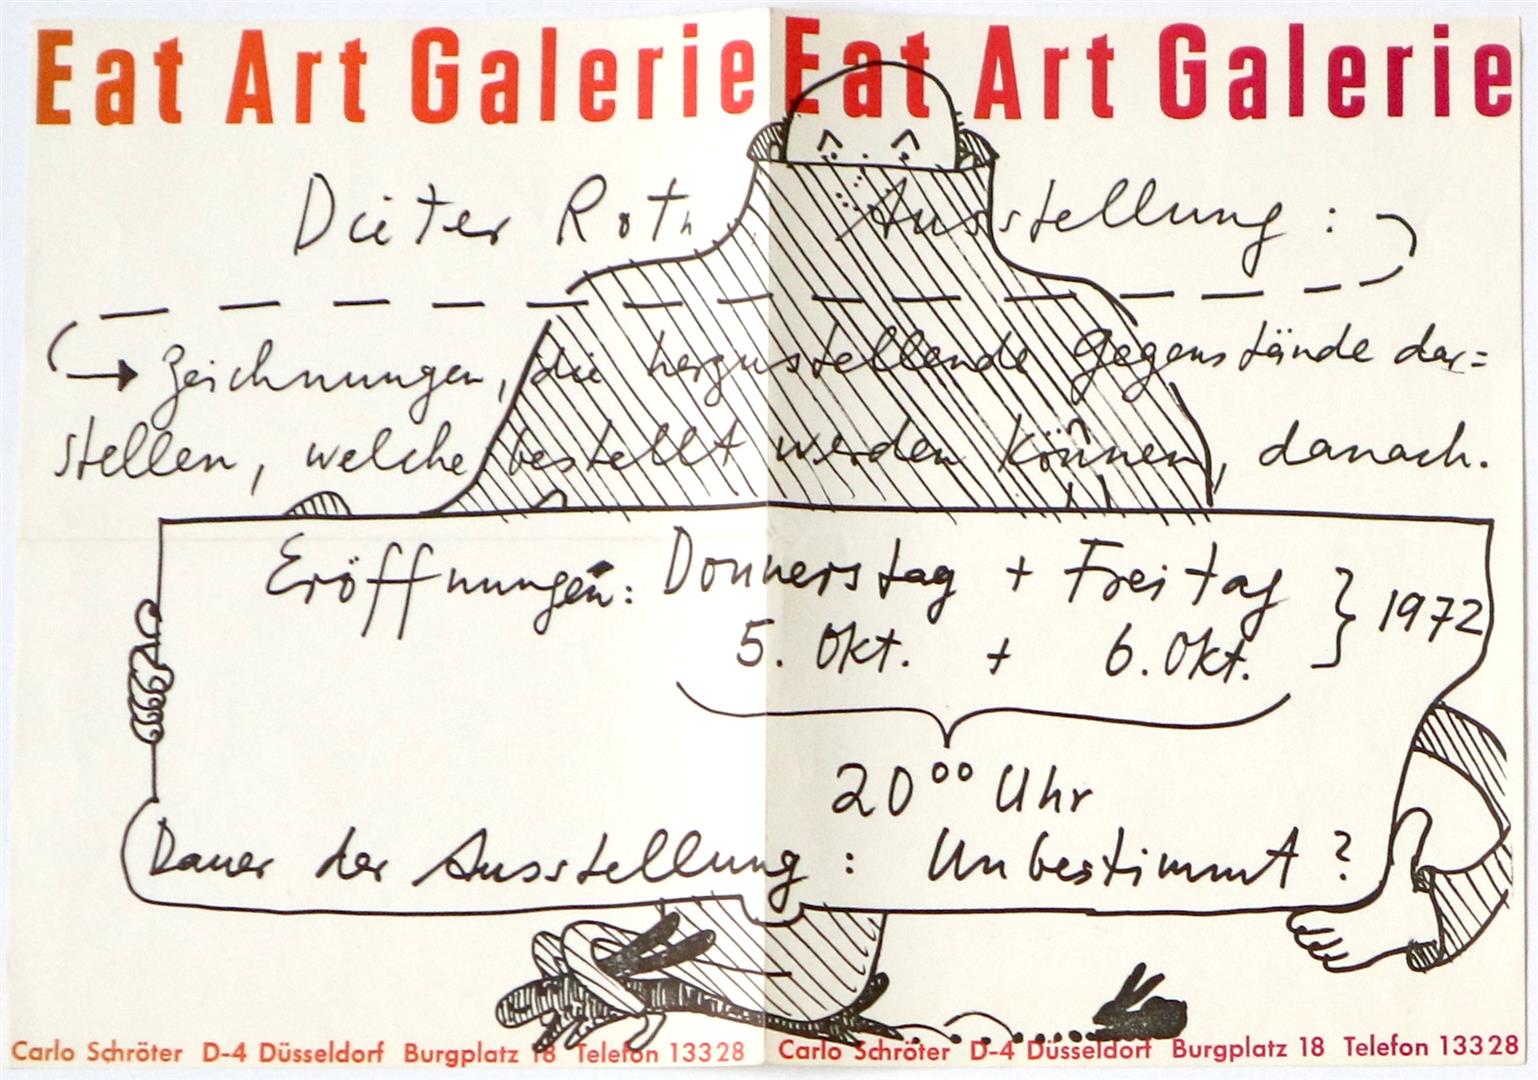 Eat Art Galerie Eat Art Galerie
Dieter Roth Ausstellung:
Zeichnungen, die herzustellende Gegenstände dar=
stellen, welche bestellt werden können, danach.
Eröffnungen: Donnerstag + Freitag } 1972
5. Okt. + 6. Okt.
20⁰⁰ Uhr
Dauer der Ausstellung: Unbestimmt?
Carlo Schröter D-4 Düsseldorf Burgplatz 18 Telefon 133 28 Carlo Schröter D-4 Düsseldorf Burgplatz 18 Telefon 133 28